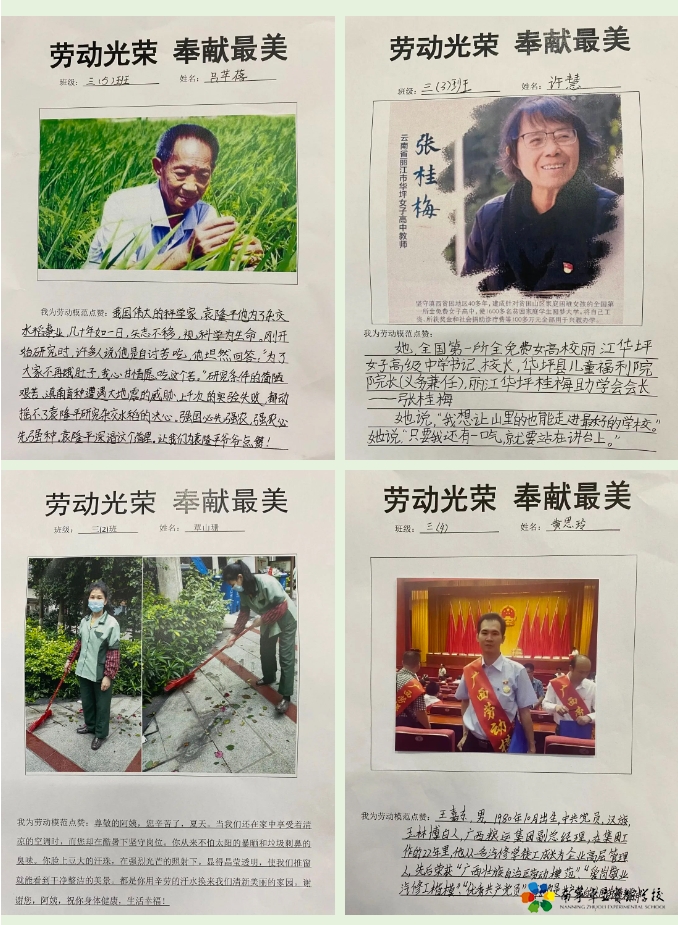 劳动光荣 奉献最美
班级： 三(5)班 姓名：
我为劳动模范点赞：我国伟大的科学家，袁隆平他为了杂交
水稻事业，几十年如一日，矢志不移，视科学为生命。刚开
始研究时，许多人说他是自讨苦吃，他坦然回答，“为了
大家不再饿肚子，我心甘情愿吃这个苦。”研究条件的简陋
艰苦，滇南育种遭遇大地震的威胁，上千次的实验失败，都动
摇不了袁隆平研究杂交水稻的决心。强国必先强农，强农必
先强种，袁隆平深谙这个道理，让我们为袁隆平爷爷点赞！
劳动光荣 奉献最美
班级： 三(3)班 姓名： 许慧
张桂梅
云南省丽江市华坪女子高中教师
我为劳动模范点赞：
她，全国第一所全免费女高校丽江华坪
女子高级中学书记、校长，华坪县儿童福利院
院长(义务兼任)，丽江华坪桂梅助学会会长
——张桂梅
她说，“我想让山里的也能走进最好的学校。”
她说“只要我还有一口气，就要站在讲台上。”
劳动光荣 奉献最美
班级： 三(2)班 姓名： 覃山珊
我为劳动模范点赞：尊敬的阿姨，您辛苦了，夏天，当我们还在家中享受着清
凉的空调时，而您却在酷暑下坚守岗位。你从来不怕太阳的暴晒和垃圾刺鼻的
臭味，你脸上豆大的汗珠，在强烈光芒的照射下，显得晶莹透明，使我们推窗
就能看到干净整洁的美景。都是你用辛勤的汗水换来我们清新美丽的家园，谢
谢您，阿姨，祝你身体健康，生活幸福！
劳动光荣 奉献最美
班级： 三(4) 姓名： 黄思玲
广西劳动模
我为劳动模范点赞： 男，1980年10月出生，中共党员，汉族，
玉林博白人，广西 运集团副总经理，在集团工
作的22年里，他从一名汽修学徒工成长为企业高层管理
人，先后荣获“广西壮族自治区劳动模范”“爱岗敬业
汽修工 ”“优秀共产党员”
NANNING ZHUOO EXPERIMENTAL SCHOOL